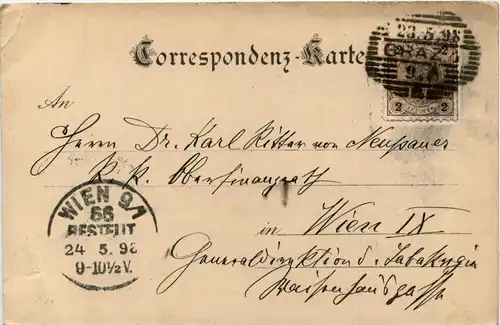 Correspondenz-Karte
23.5.98
GRAZ
2 2
An
Herrn Dr. Karl Ritter von Neupauer
k. k. Oberfinanzrath
in Wien IX
Generaldirektion d. Tabakregie
Waisenhausgasse
WIEN 9/1
66
BESTELLT
24 5.98
9-10½V.